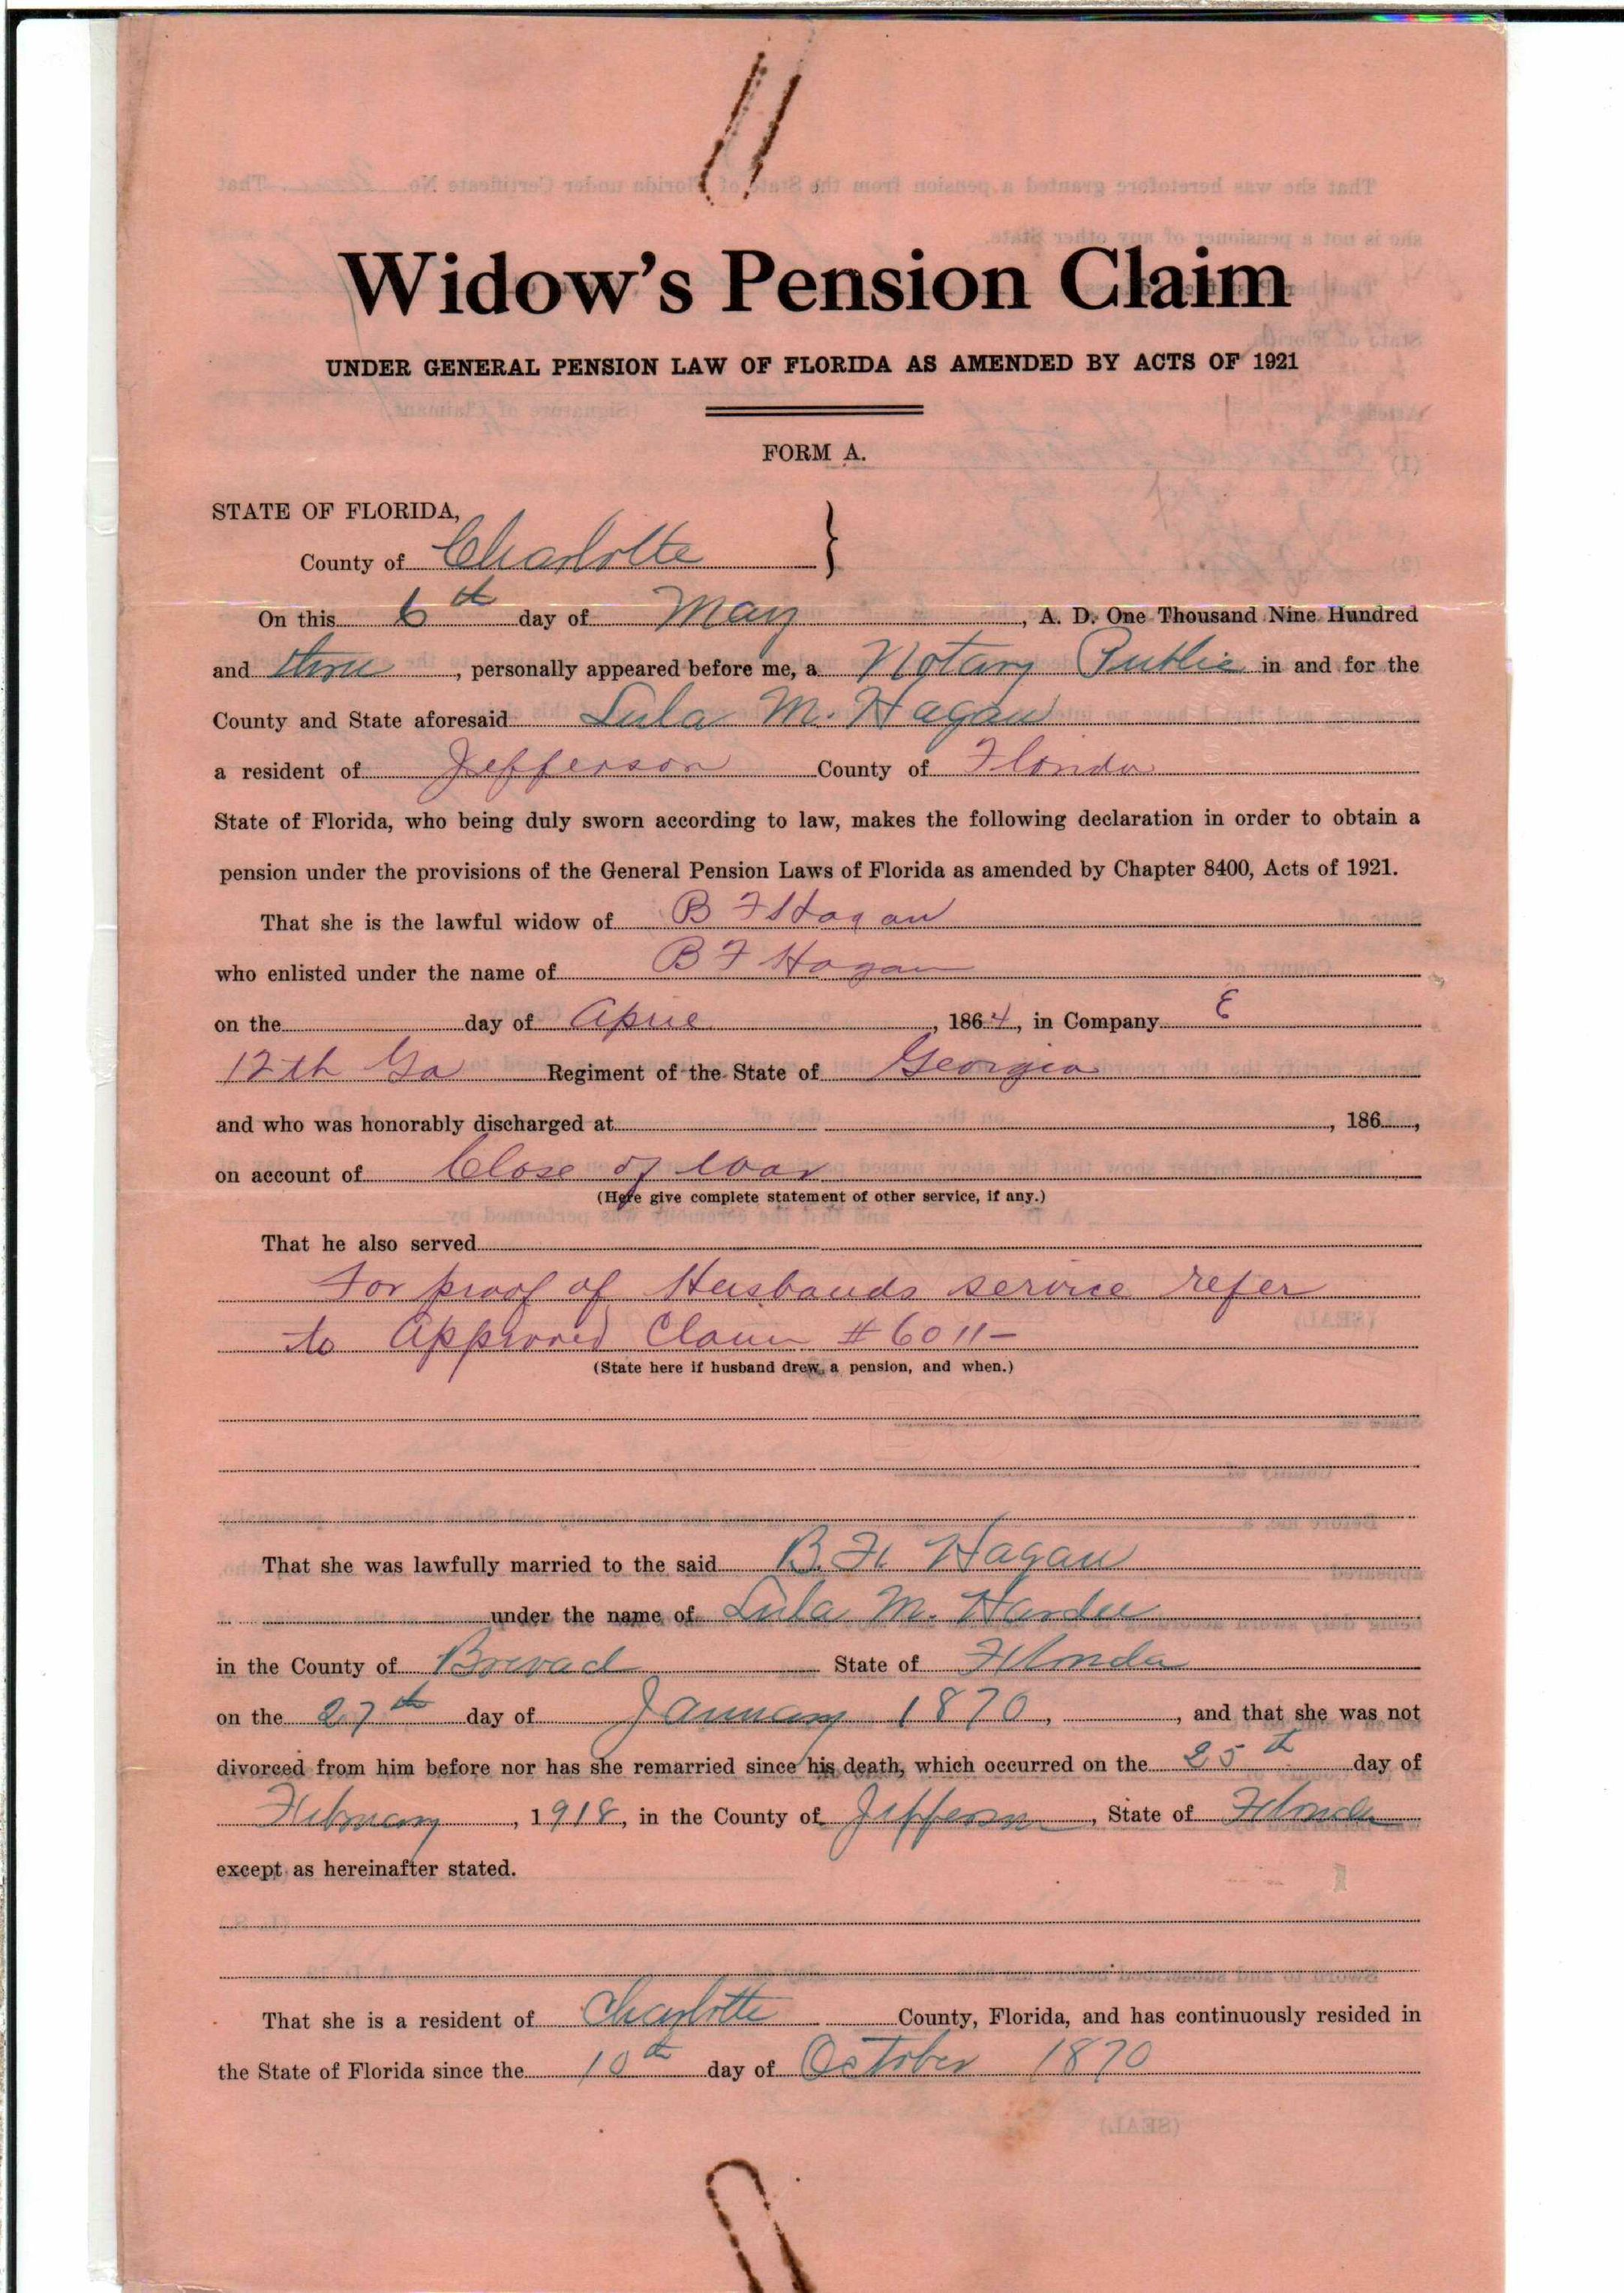 Widow's Pension Claim
UNDER GENERAL PENSION LAW OF FLORIDA AS AMENDED BY ACTS OF 1921
FORM A.
STATE OF FLORIDA,
County of Charlotte }
On this 6th day of May, A. D. One Thousand Nine Hundred
and three, personally appeared before me, a Notary Public in and for the
County and State aforesaid Lula M. Hagan
a resident of Jefferson County of Florida
State of Florida, who being duly sworn according to law, makes the following declaration in order to obtain a
pension under the provisions of the General Pension Laws of Florida as amended by Chapter 8400, Acts of 1921.
That she is the lawful widow of B F Hagan
who enlisted under the name of B F Hagan
on the day of April, 1864, in Company E
12th Ga Regiment of the State of Georgia
and who was honorably discharged at , 186 ,
on account of Close of War
(Here give complete statement of other service, if any.)
That he also served
For proof of Husbands service refer
to Approved Claim #6011-
(State here if husband drew a pension, and when.)
That she was lawfully married to the said B. F. Hagan
under the name of Lula M. Hardee
in the County of Brevard State of Florida
on the 27th day of January 1870, , and that she was not
divorced from him before nor has she remarried since his death, which occurred on the 25th day of
February, 1918, in the County of Jefferson, State of Florida
except as hereinafter stated.
That she is a resident of Charlotte County, Florida, and has continuously resided in
the State of Florida since the 10th day of October 1870